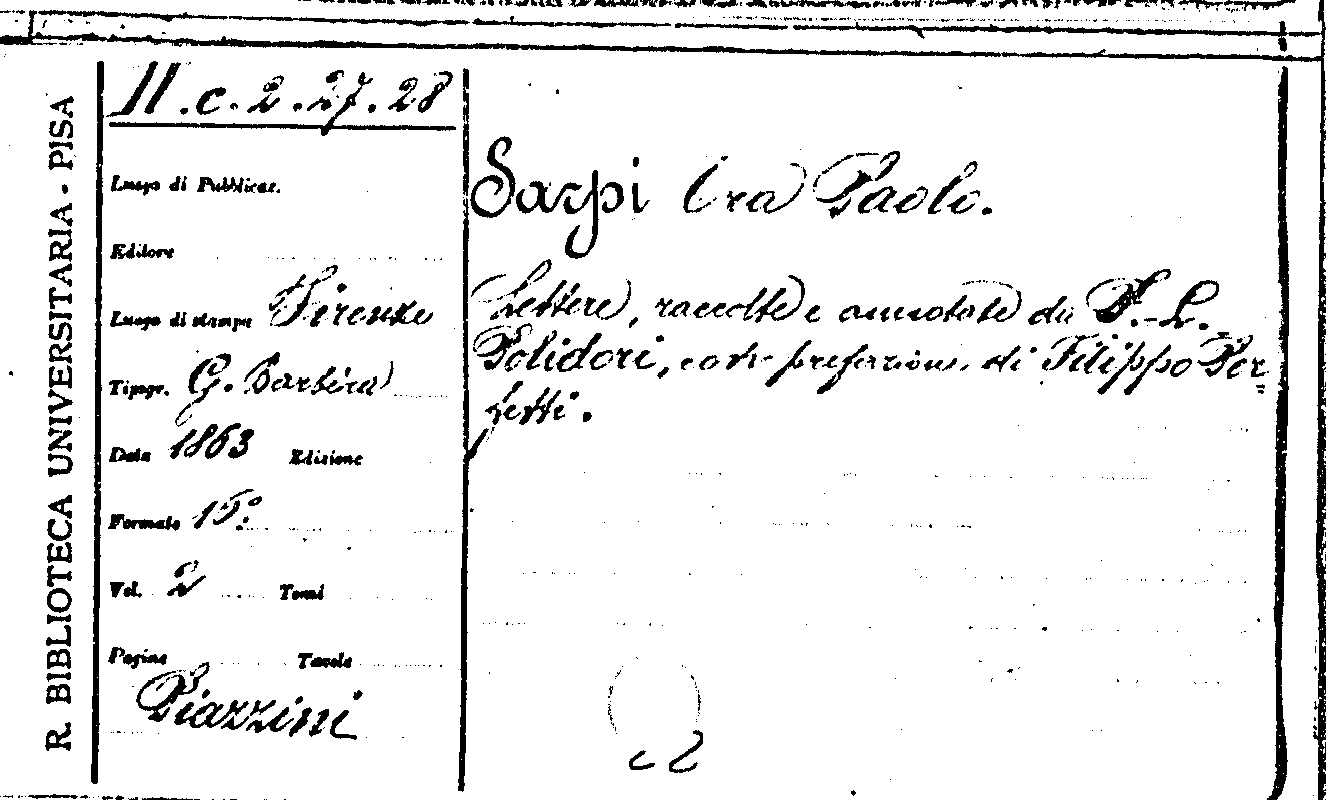 R. BIBLIOTECA UNIVERSITARIA - PISA
II.c.2.27.28
Luogo di Pubblicaz.
Editore
Luogo di stampa Firenze
Tipogr. G. Barbèra
Data 1863 Edizione
Formato 15°
Vol. 2 Tomi
Pagine Tavole
Piazzini
Sarpi Fra Paolo.
Lettere, raccolte e annotate da F.-L.
Polidori, con prefazione di Filippo Per=
fetti.